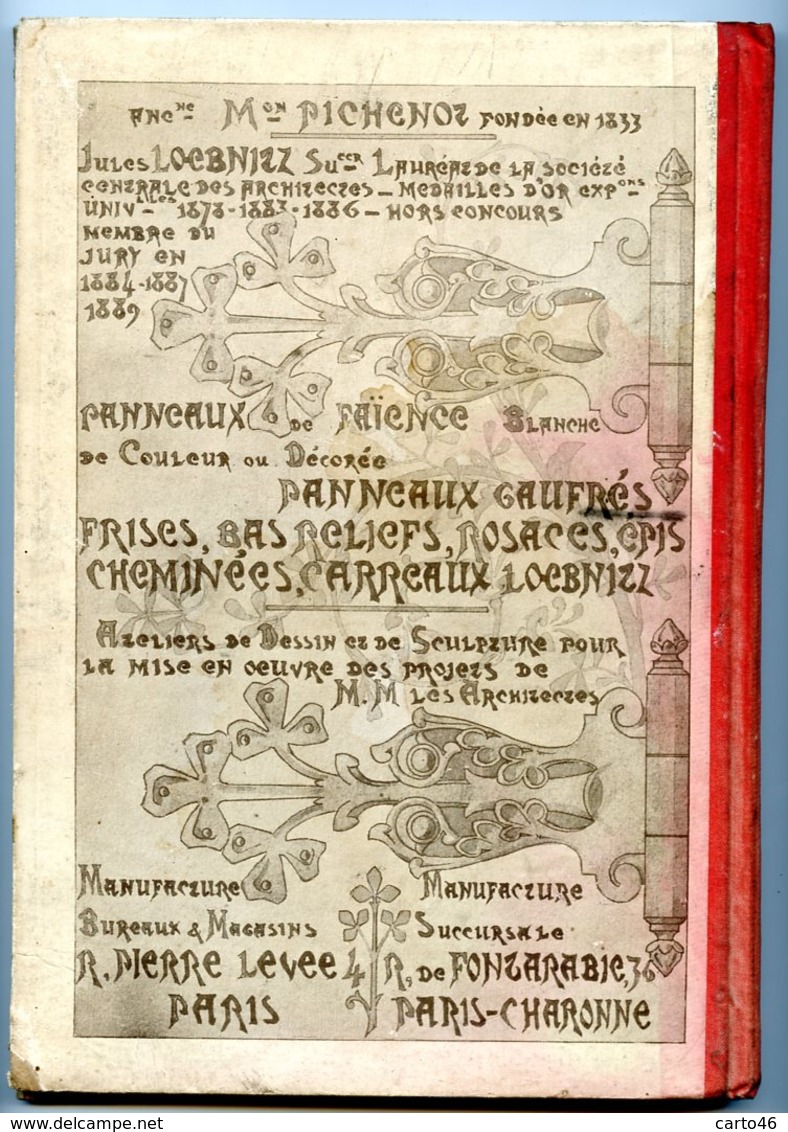 ANCNE MON PICHENOT FONDÉE EN 1833
JULES LOEBNITZ SUCCR LAURÉAT DE LA SOCIÉTÉ
CENTRALE DES ARCHITECTES – MEDAILLES D'OR EXPONS
UNIVLLES 1878-1883-1886 – HORS CONCOURS
MEMBRE DU
JURY EN
1884-1887
1889
PANNEAUX DE FAÏENCE BLANCHE
DE COULEUR OU DÉCORÉE
PANNEAUX GAUFRÉS
FRISES, BAS RELIEFS, ROSACES, ÉPIS
CHEMINÉES, CARREAUX LOEBNITZ
ATELIERS DE DESSIN ET DE SCULPTURE POUR
LA MISE EN OEUVRE DES PROJETS DE
M.M LES ARCHITECTES
MANUFACTURE
BUREAUX & MAGASINS
R, PIERRE LEVEE 4
PARIS
MANUFACTURE
SUCCURSALE
R, DE FONTARABIE, 36
PARIS-CHARONNE
www.delcampe.net
carto46